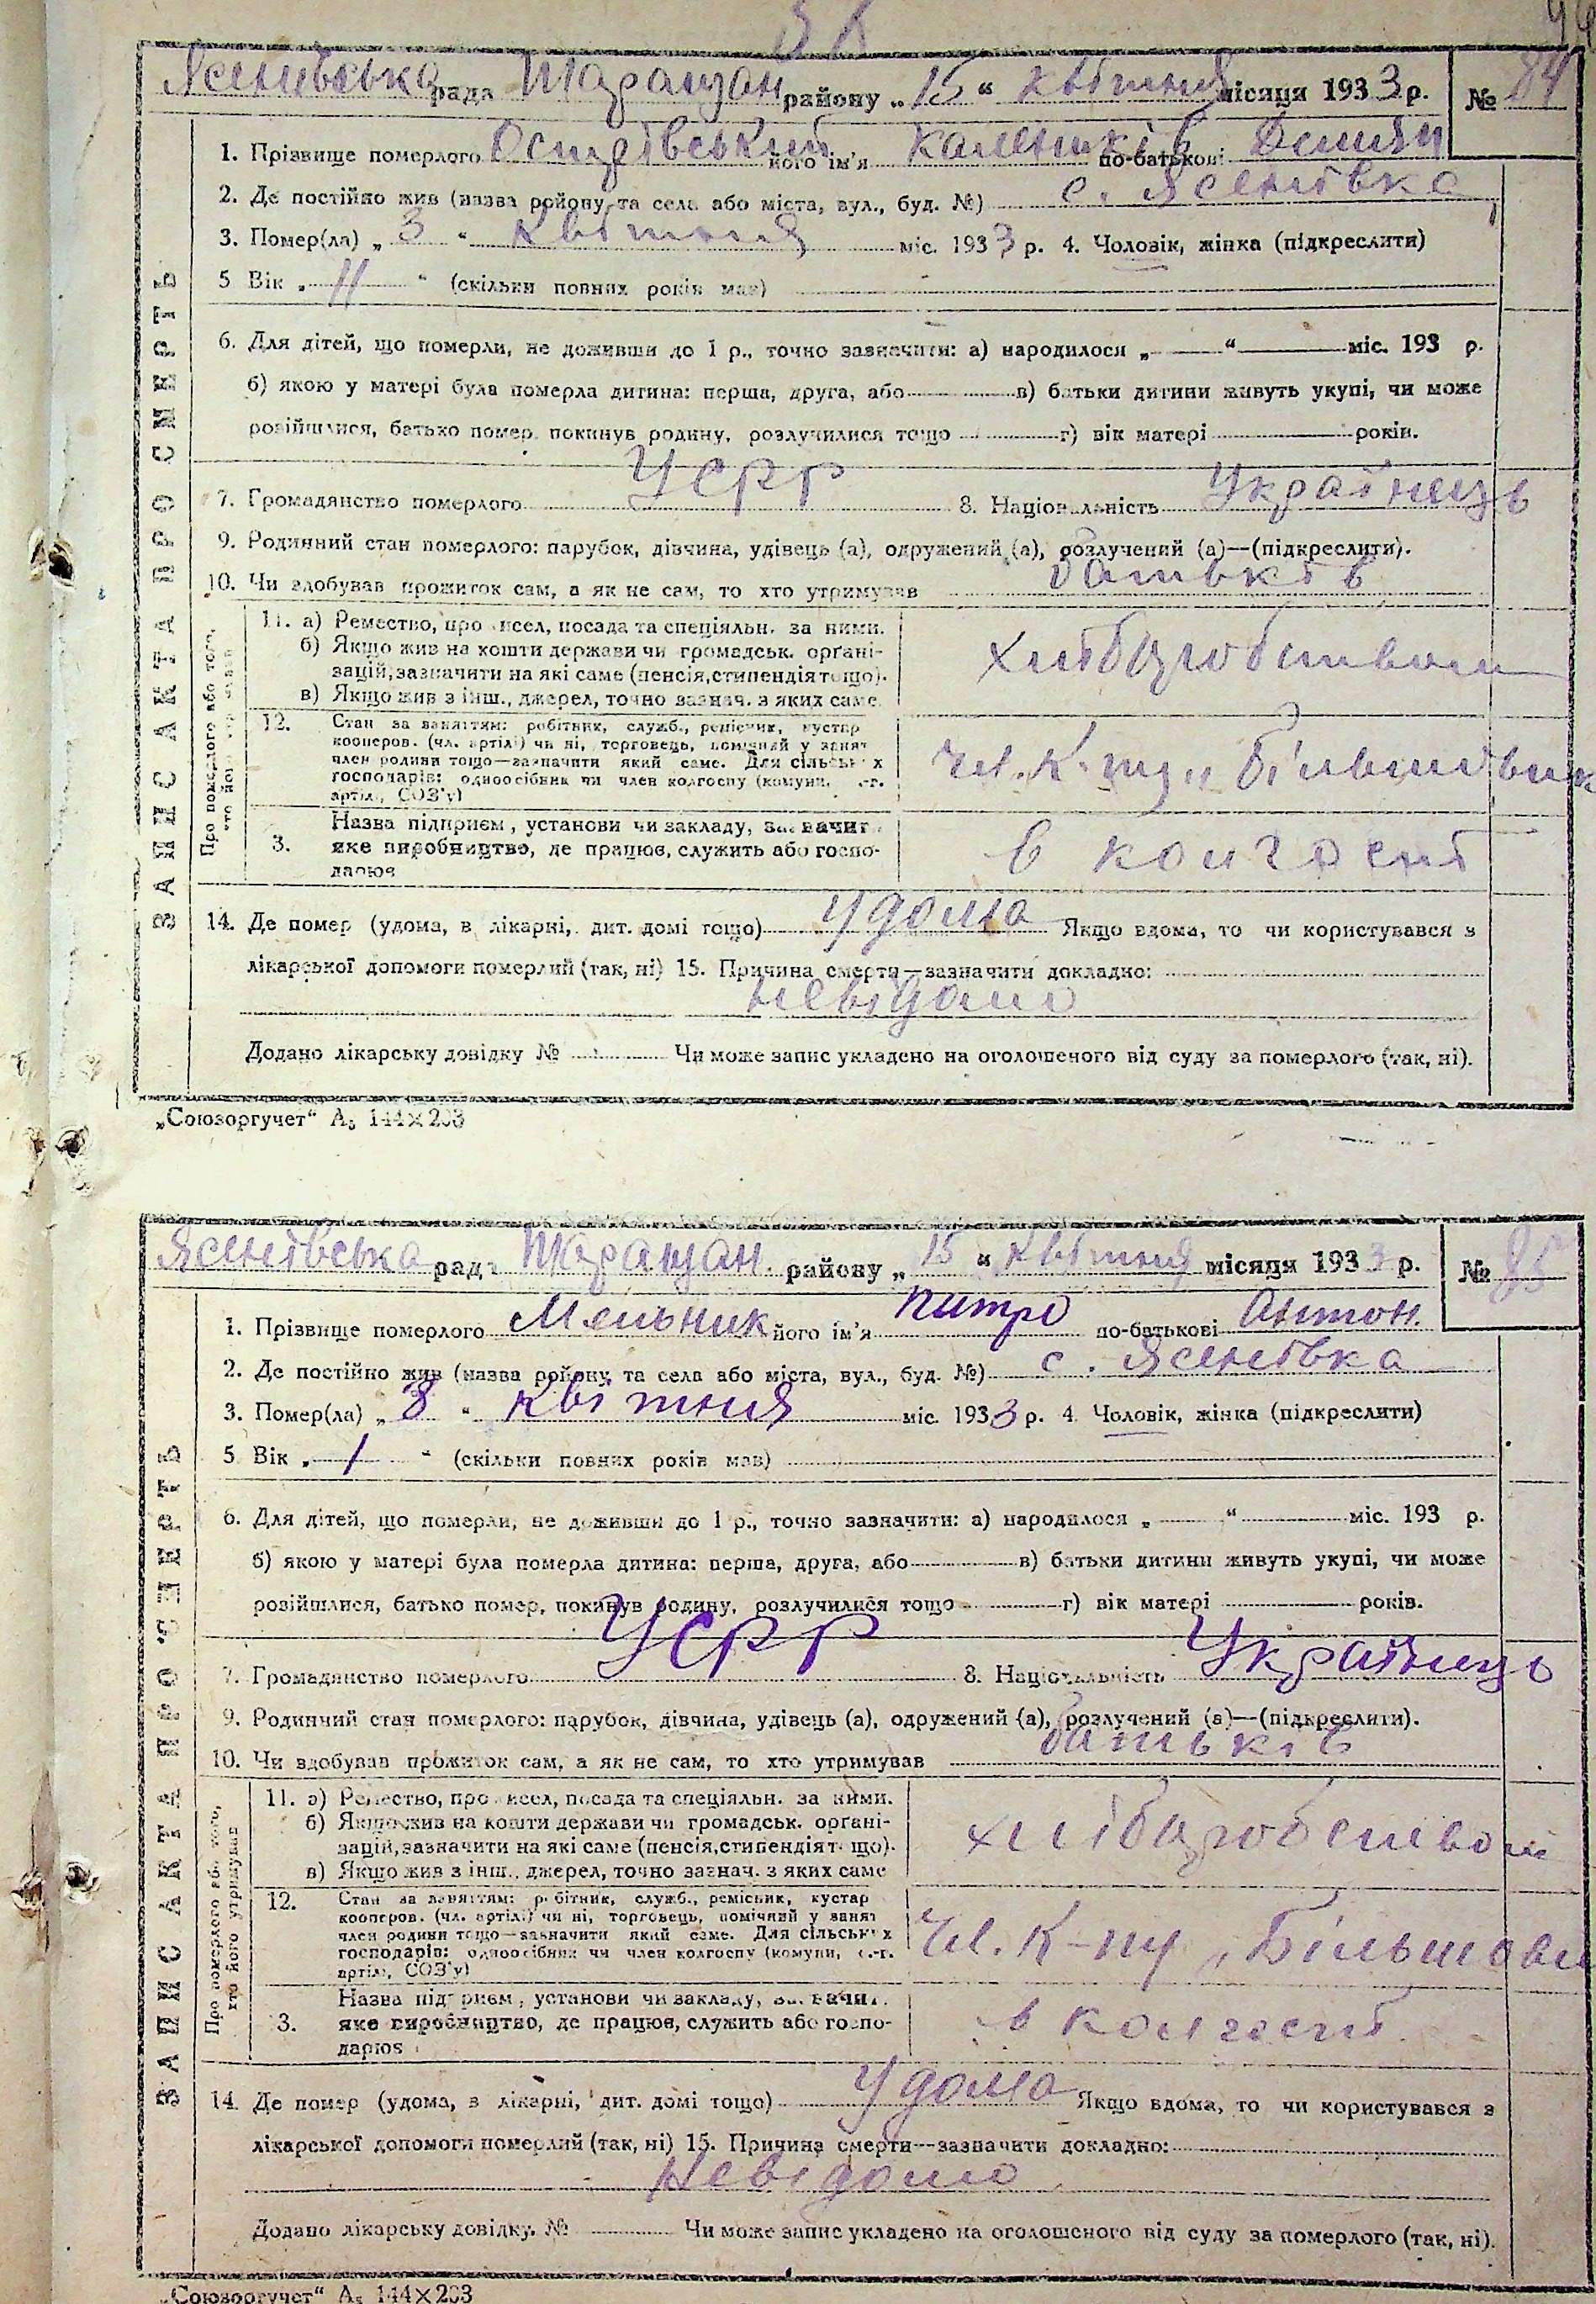 Ясенівська рада Таращан району „15“ квітня місяця 1933 р. № 84
1. Прізвище померлого Острівський його ім'я по-батькові Демян
2. Де постійно жив (назва району та села або міста, вул., буд. №) с. Ясенівка
3. Помер(ла) „3“ квітня міс. 1933 р. 4. Чоловік, жінка (підкреслити)
5 Вік „11“ (скільки повних років мав)
6. Для дітей, що померли, не доживши до 1 р., точно зазначити: а) народилося „ “ міс. 193 р.
б) якою у матері була померла дитина: перша, друга, або в) батьки дитини живуть укупі, чи може
розійшлися, батько помер, покинув родину, розлучилися тощо г) вік матері років.
7. Громадянство померлого УСРР 8. Національність Українець
9. Родинний стан померлого: парубок, дівчина, удівець (а), одружений (а), розлучений (а)—(підкреслити).
10. Чи здобував прожиток сам, а як не сам, то хто утримував батьків
ЗАПИС АКТА ПРО СМЕРТЬ
Про померлого або того, хто його утримував
11. а) Ремество, промисел, посада та спеціяльн. за ними.
б) Якщо жив на кошти держави чи громадськ. органі-
зацій, зазначити на які саме (пенсія, стипендія тощо).
в) Якщо жив з інш., джерел, точно зазнач. з яких саме
хліборобством
12. Стан за заняттям: робітник, служб., ремісник, кустар
кооперов. (чл. артілі) чи ні, торговець, помічний у занят
член родини тощо—зазначити який саме. Для сільськ х
господарів: одноосібник чи член колгоспу (комуни, с.-г.
артілі, СОЗ'у)
чл. К-пу „Більшовик
3. Назва підприєм, установи чи закладу, зазначит
яке виробництво, де працює, служить або госпо-
дарює
в колгоспі
14. Де помер (удома, в лікарні, дит. домі тощо) удома Якщо вдома, то чи користувався з
лікарської допомоги померлий (так, ні) 15. Причина смерти—зазначити докладно:
невідомо
Додано лікарську довідку № Чи може запис укладено на оголошеного від суду за померлого (так, ні).
„Союзоргучет“ А5 144×203
Ясенівська рада Таращан. району „15“ квітня місяця 1933 р. № 85
1. Прізвище померлого Мельник його ім'я Питро по-батькові Антон.
2. Де постійно жив (назва району та села або міста, вул., буд. №) с. Ясенівка
3. Помер(ла) „8“ квітня міс. 1933 р. 4. Чоловік, жінка (підкреслити)
5 Вік „1“ (скільки повних років мав)
6. Для дітей, що померли, не доживши до 1 р., точно зазначити: а) народилося „ “ міс. 193 р.
б) якою у матері була померла дитина: перша, друга, або в) батьки дитини живуть укупі, чи може
розійшлися, батько помер, покинув родину, розлучилися тощо г) вік матері років.
7. Громадянство померлого УСРР 8. Національність Українець
9. Родинний стан померлого: парубок, дівчина, удівець (а), одружений (а), розлучений (а)—(підкреслити).
10. Чи здобував прожиток сам, а як не сам, то хто утримував батьків
ЗАПИС АКТА ПРО СМЕРТЬ
Про померлого або того, хто його утримував
11. а) Ремество, промисел, посада та спеціяльн. за ними.
б) Якщо жив на кошти держави чи громадськ. органі-
зацій, зазначити на які саме (пенсія, стипендія тощо).
в) Якщо жив з інш., джерел, точно зазнач. з яких саме
хліборобством
12. Стан за заняттям: робітник, служб., ремісник, кустар
кооперов. (чл. артілі) чи ні, торговець, помічний у занят
член родини тощо—зазначити який саме. Для сільськ х
господарів: одноосібник чи член колгоспу (комуни, с.-г.
артілі, СОЗ'у)
Чл. К-пу „Більшови
3. Назва підприєм, установи чи закладу, зазначит.
яке виробництво, де працює, служить або госпо-
дарює
в колгоспі
14. Де помер (удома, в лікарні, дит. домі тощо) удома Якщо вдома, то чи користувався з
лікарської допомоги померлий (так, ні) 15. Причина смерти—зазначити докладно:
Невідомо
Додано лікарську довідку. № Чи може запис укладено на оголошеного від суду за померлого (так, ні).
„Союзоргучет“ А5 144×203